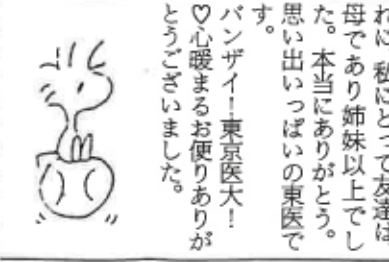 れに、私にとって友達は
母であり姉妹以上でし
た。本当にありがとう。
思い出いっぱいの東医で
す。
バンザイ!東京医大!
♡心暖まるお便りありが
とうございました。